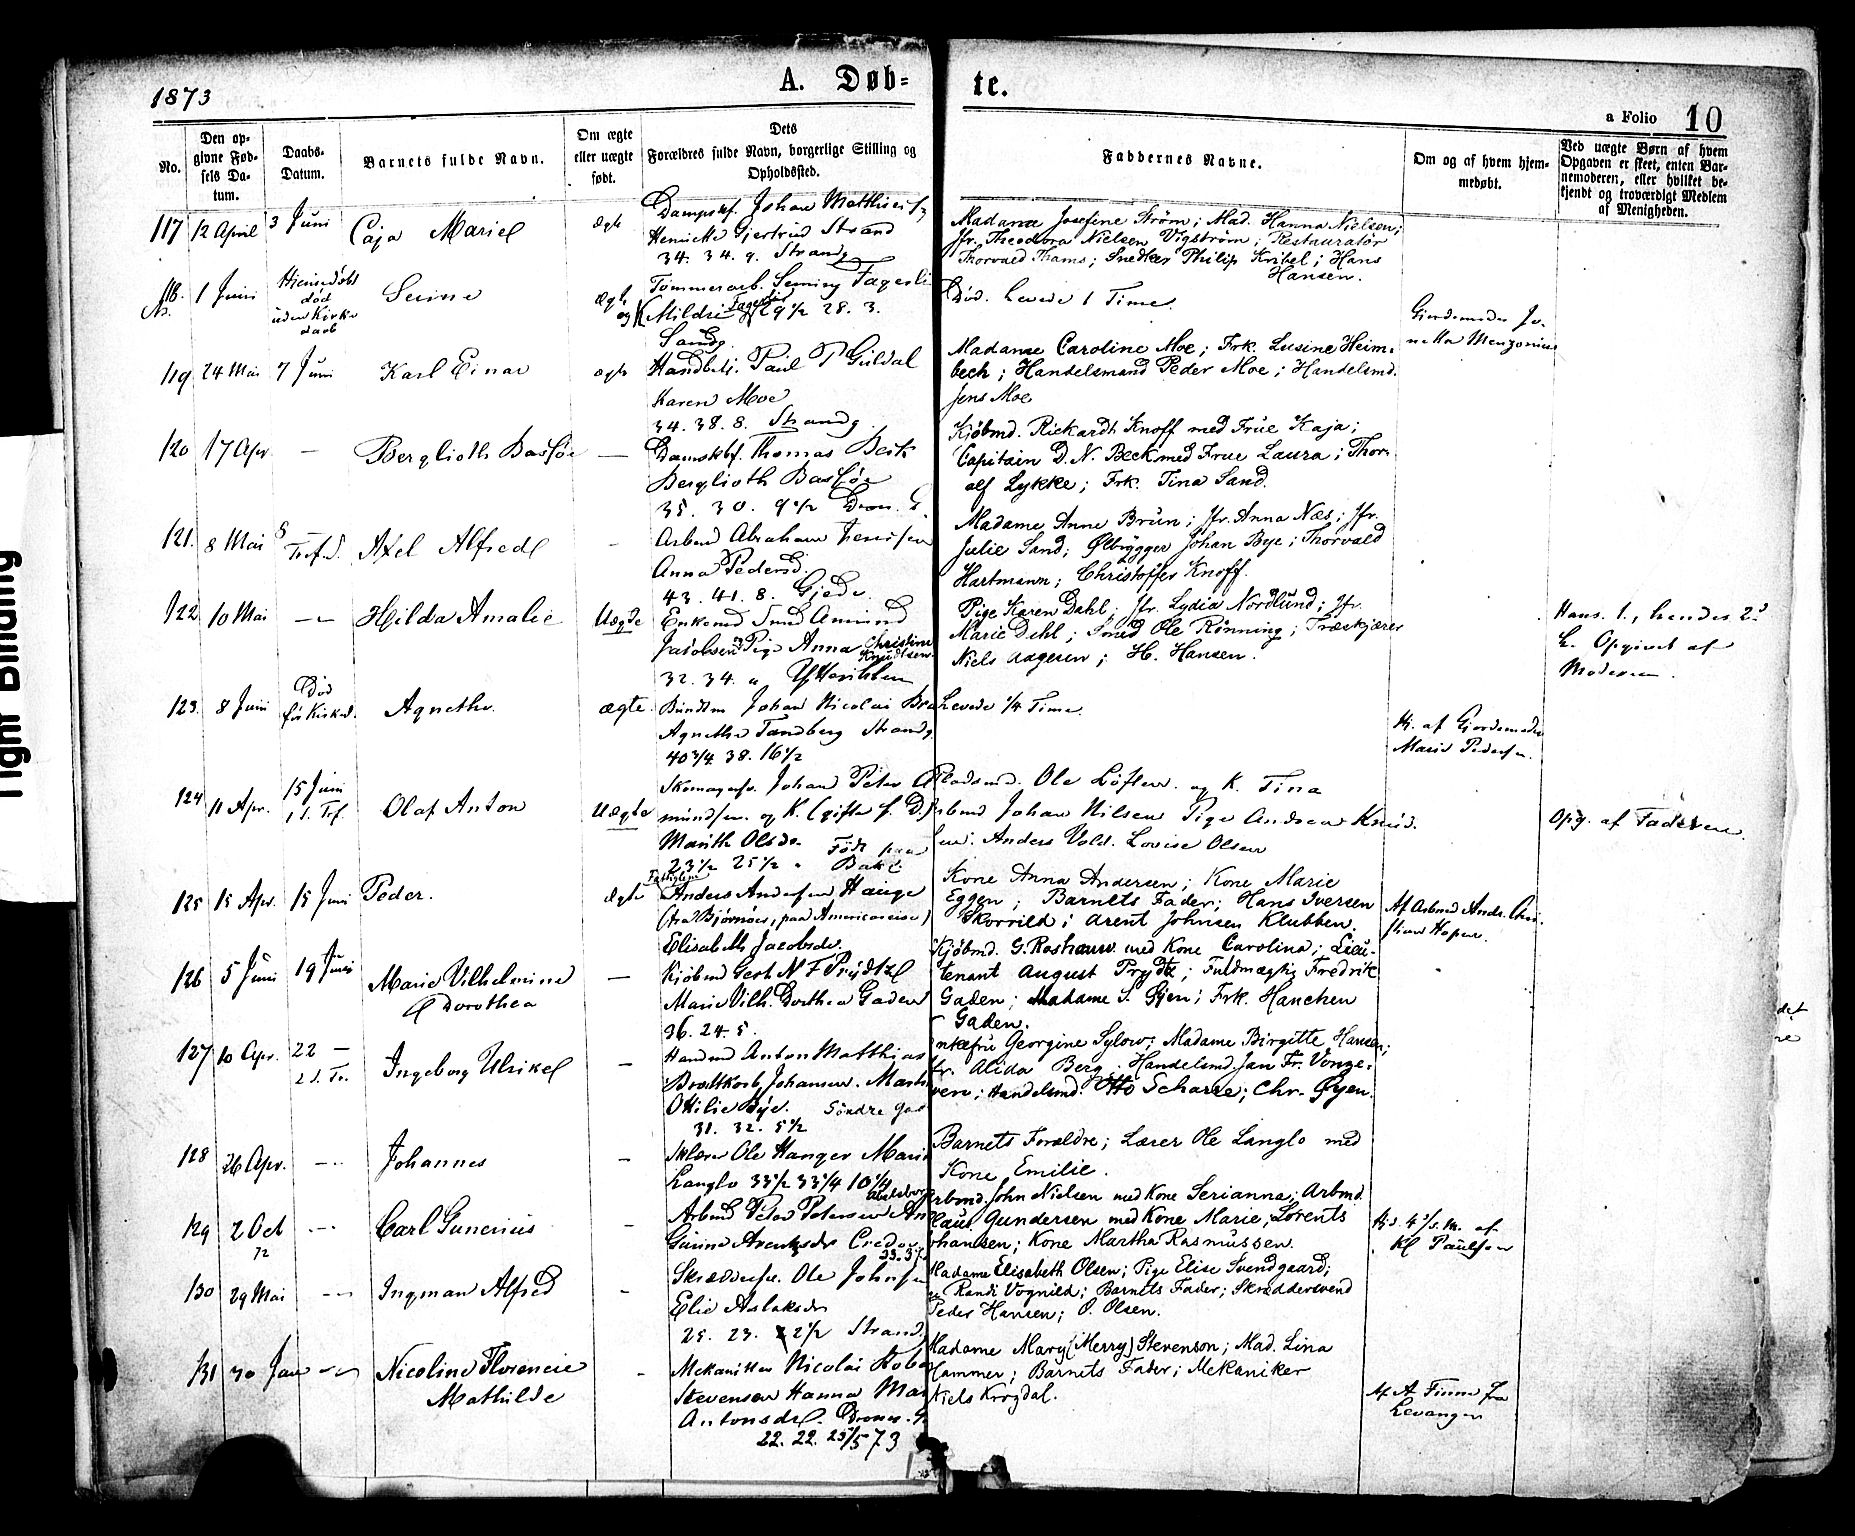 1873
A. Døb-
te.
a Folio 10
No.
Den op-
givne Fød-
sels Da-
tum.
Daabs-
Datum.
Barnets fulde Navn.
Om ægte
eller uægte
født.
Dets
Forældres fulde Navn, borgerlige Stilling og
Opholdssted.
Faddernes Navne.
Om og af hvem hjem-
medøbt.
Ved uægte Børn af hvem
Opgaven er skeet, enten Bar-
nemoderen, eller hvilket be-
kjendt og troværdigt Medlem
af Menigheden.
117 12 April 3 Juni Caja Marie ægte
Johan
Henriette Gjertrud Strand
34. 34. 9. Strandg
Madame Josefine Strøm; Mad. Hanna Nielsen;
Jfr. Theodora Nielsen Vigstrøm; Restauratør
Thorvald Thams; Snedker Philip Kribel; Hans
Hansen.
118. 1 Juni Hjemmedøbt
død
uden Kirke
daab
ægte
Tømmerarb.
og K Mildri 29 1/2 28. 3.
Sandg.
Død. Levede 1 Time.
Gjordemoder
119 24 Mai 7 Juni Karl Einar ægte
Paul P Guldal
Karen Moe
34. 38. 8. Strandg.
Madame Caroline Moe; Frk. Lusine Heim-
bech; Handelsmand Peder Moe; Handelsmd.
Jens Moe
120 17 Apr — Berglioth Bassøe —
Thomas Beck
Berglioth Bassøe
35. 30. 9 1/2
Kjøbmd. Rickardt Knoff med Frue Kaja;
Capitain D. N. Beck med Frue Laura; Thor-
alf Lykke; Frk. Tina Sand.
121. 8 Mai 8
Tref. S. Axel Alfred -
Arbmd Abraham
Anna Pedersd.
43. 41. 8.
Madame Anne Brun; Jfr. Anna Næs; Jfr.
Julie Sand; Ølbrygger Johan Bye; Thorvald
Hartmann; Christoffer Knoff.
122 10 Mai — Hilda Amalie Uægte
Enkemd Smed Amund
Jacobsen & Pige Anna Christine
Knudtsen
32. 34. "
Pige Karen Dahl; Jfr. Lydia Nordlund; Jfr.
Marie Dehl; Smed Ole Rønning; Træskjærer
Niels Aagesen; H. Hansen.
Hans 1., hendes 2d
Opgivet af
Moderen.
123. 8 Juni Død
før Kirked. Agnethe ægte.
Johan Nicolai
Agnethe Tandberg Strandg
40 3/4 38. 16 1/2
Levede 1/4 Time.
Hj. af Gjordemoder
Marie Pedersen.
124 11 Apr. 15 Juni
1 S. Tref. Olaf Anton Uægte
Skomagersv. Johan Peter
mundsen og K. (gifte f. D.)
Marith Olsdr. Født paa
23 1/2 25 1/2 "
Pladsmd. Ole Løften og K. Tina
Johan Nilsen Pige Andrea Knud-
sen. Anders Vold. Lovise Olsen
Opg. af Faderen.
125 15 Apr. 15 Juni Peder. ægte
Anders Andersen Hauge
(fra Bjørnør, paa Americareise)
Elisabeth Jacobsdr.
Kone Anna Andersen; Kone Marie
Eggen; Barnets Fader; Hans Iversen
Skorvild; Arent Johnsen Klubben.
Af Arbmd Andr. Chri-
stian Hopen.
126 5 Juni 19 Juni Marie Vilhelmine
Dorothea —
Kjøbmd Gerh N F Prydtz
Marie Vilh. Dorthea Gaden
36. 24. 5.
Kjøbmd. G. Roshauw med Kone Carolina; Lieu-
tenant August Prydtz; Fuldmægtig Fredrik
Gaden; Madame S. Gjen; Frk. Hanchen
Gaden.
127 10 Apr. 22 —
2 S. Tr. Ingeborg Ulrike —
Handmd Anton Matthias
Brodtkorb Johansen. Marth
Ottilie Bye. Söndre gad
31. 32. 5 1/2
Enkefru Georgine Sylow; Madame Birgitte Hansen;
Jfr. Alida Berg; Handelsmd. Jan Fr. Vonge-
ven; Handelsmd. Otto Scharre; Chr. Øyen.
128 26 Apr. — Johannes —
Ole Hanger Marie
Langlo 33 1/2 33 1/4 10 1/4
Barnets Forældre; Lærer Ole Langlo med
Kone Emilie.
129 2 Oct
72 — Carl Gunerius -
Arbmd Peter Petersen
Gurine Arentzdr
33. 37.
Arbmd. John Nielsen med Kone Serianna; Arbmd.
Claus Gundersen med Kone Marie; Lorents
Johansen; Kone Martha Rasmussen.
Kl Paulsen
130 29 Mai — Ingman Alfred -
Skræddersv. Ole Johnsen
Elie Aslaksdr
25. 23. 2 1/2 Strandg
Madame Elisabeth Olsen; Pige Elise Svendgaard;
Randi Vognild; Barnets Fader; Skræddersvend
Peder Hansen; O. Olsen.
131 30 Jan — Nicoline Florencie
Mathilde -
Mekaniker Nicolai
Stevenson Hanna
Antonsd.
22. 22. 25/5 73
Madame Mary (Merry) Stevenson; Mad. Lina
Hammer; Barnets Fader; Mekaniker
Niels Krogdal.
Af A Finne fra
Levanger
Tight Binding